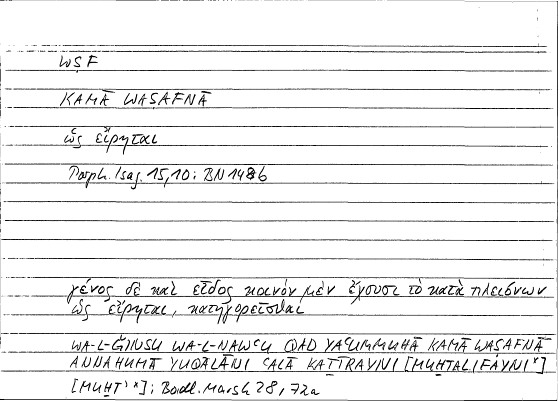 WṢF
KAMĀ WAṢAFNĀ
ὡς εἴρηται
Porph. Isag. 15,10: BN 148b
γένος δὲ καὶ εἶδος κοινὸν μὲν ἔχουσι τὸ κατὰ πλειόνων
ὡς εἴρηται, κατηγορεῖσθαι
WA-L-ǦINSU WA-L-NAWʿU QAD YAʿUMMUHĀ KAMĀ WAṢAFNĀ
ANNAHUMĀ YUQĀLĀNI ʿALĀ KAṮĪRAYNI [MUḪTALIFAYNI*]
[MUḪT**]: Bodl. Marsh 28, 72a